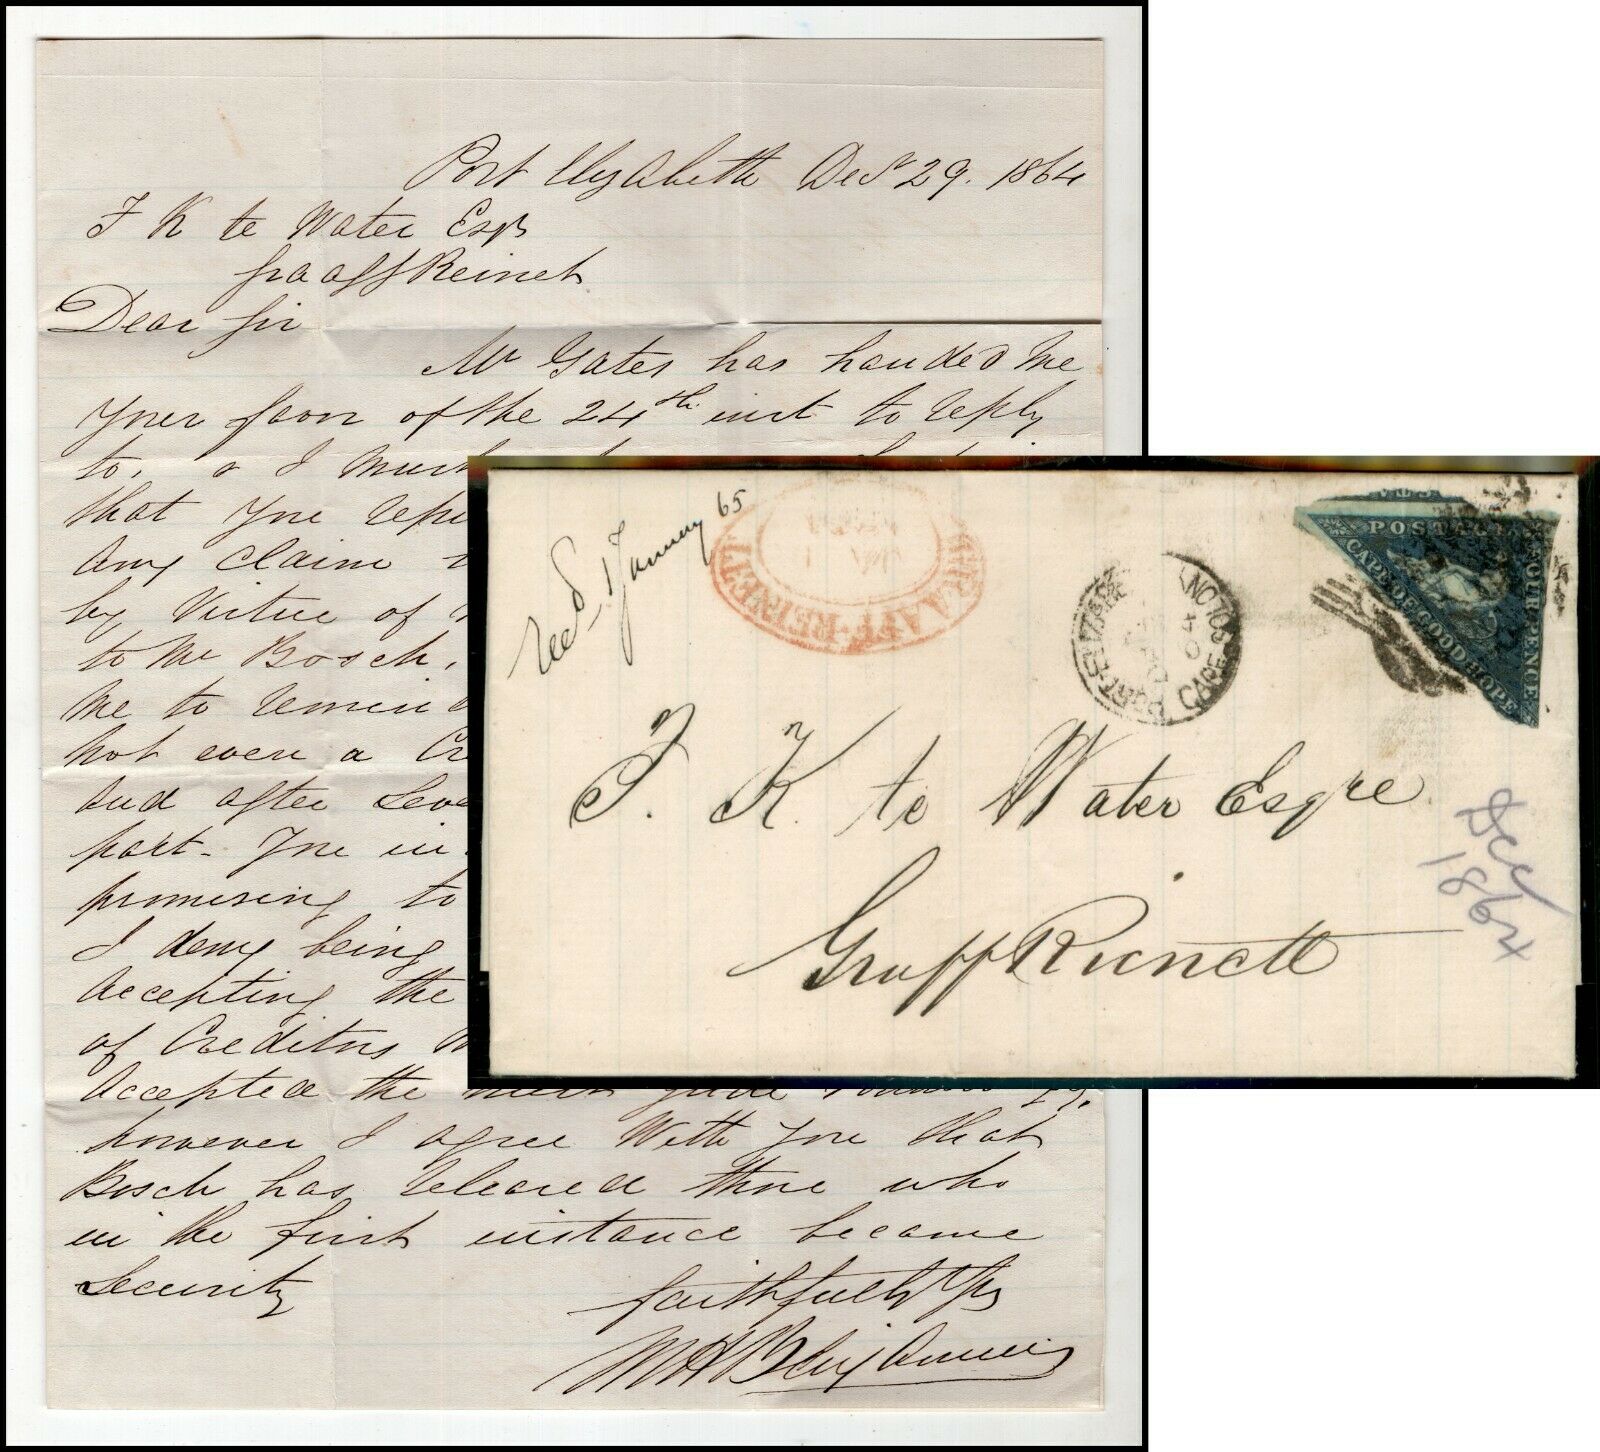 Port Elizabeth Decr 29. 1864
F K te Water Esqr
Graaff Reinet
Dear Sir
Mr Gates has handed me
your favor of the 24th inst to reply
to. & I must
that you
any claim
by Virtue of
to Mr Bosch.
me to remind
not even a
and after
part - You in
promising to
I deny being
accepting the
of Creditors
accepted the
however I agree with you that
Bosch has released those who
in the first instance became
Security
faithfully Yrs
Recd 1 January 65
GRAAFF-REINET
PORT-ELIZABETH
CAPE COLONY
POSTAGE
CAPE OF GOOD HOPE
FOUR PENCE
F. K. te Water Esqre
Graaff Reinett
Dec
1864